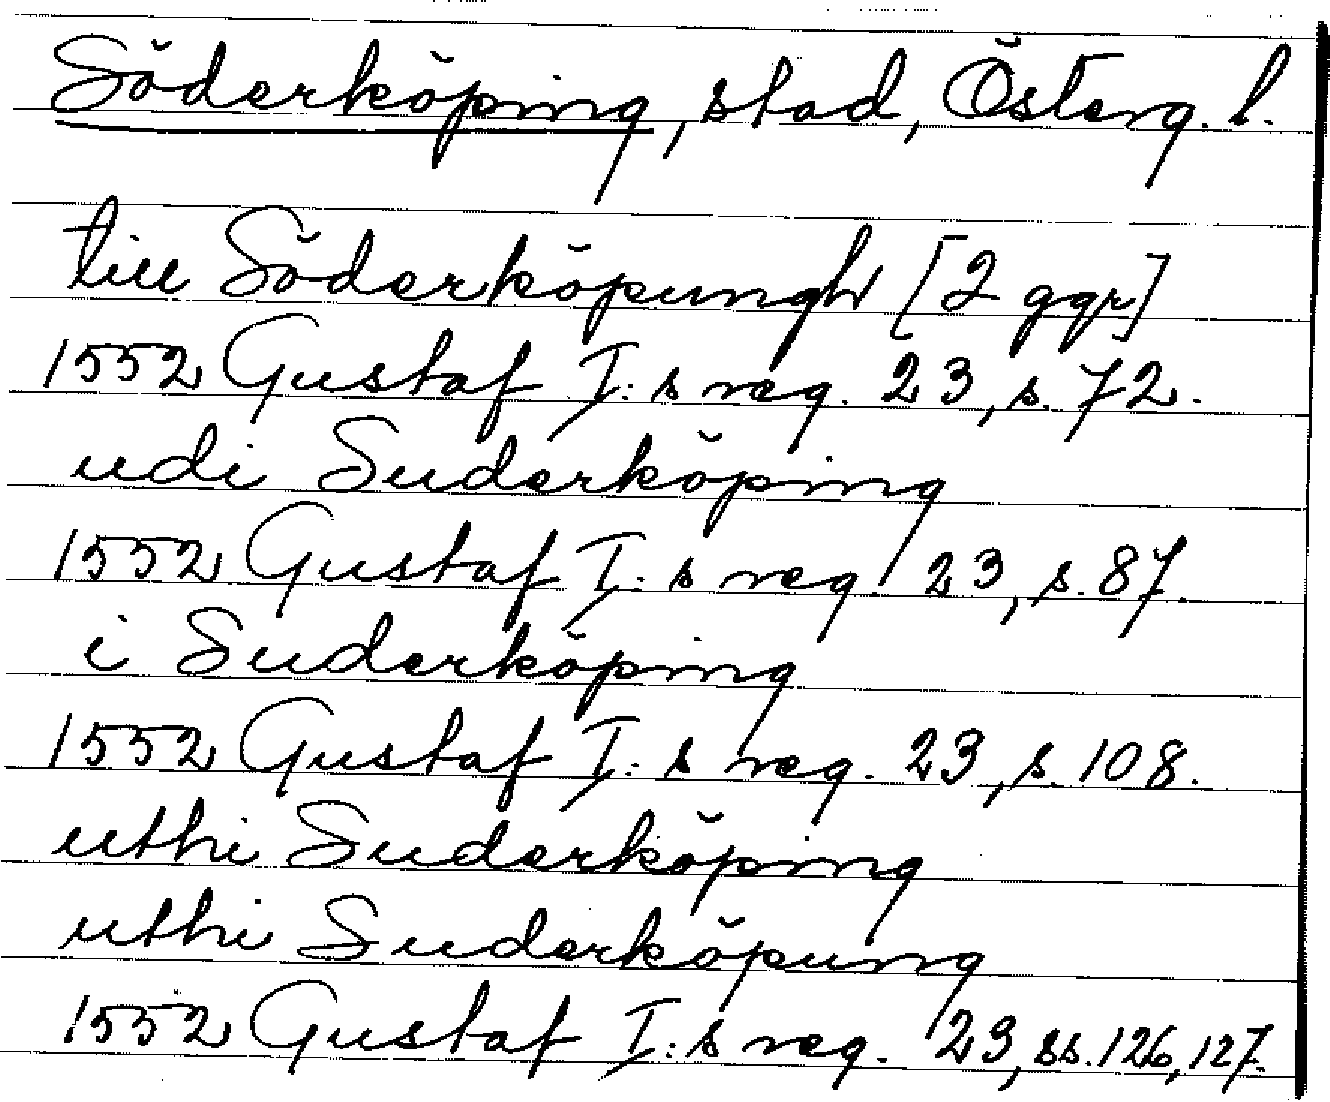 Söderköping, stad, Österg. l.
till Söderköpungh [2 ggr]
1552 Gustaf I:s reg. 23, s. 72.
udi Suderköping
1552 Gustaf I:s reg. 23, s. 87.
i Suderköping
1552 Gustaf I:s reg. 23, s. 108.
uthi Suderköping
uthi Suderköpung
1552 Gustaf I:s reg. 23, ss. 126, 127.